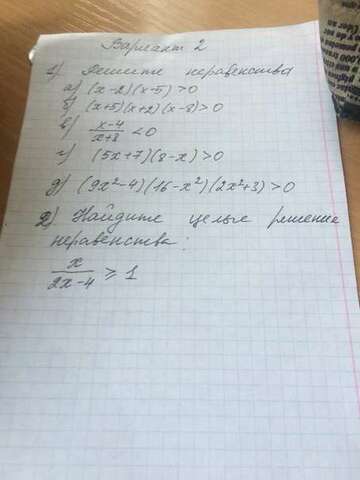 Вариант 2
1) Решите неравенства
а) (x-2)(x-5)>0
б) (x+5)(x+2)(x-8)>0
в) x-4/x+8 <0
г) (5x+7)(8-x)>0
д) (9x²-4)(16-x²)(2x²+3)>0
2) Найдите целые решение
неравенства:
x/2x-4 ⩾ 1